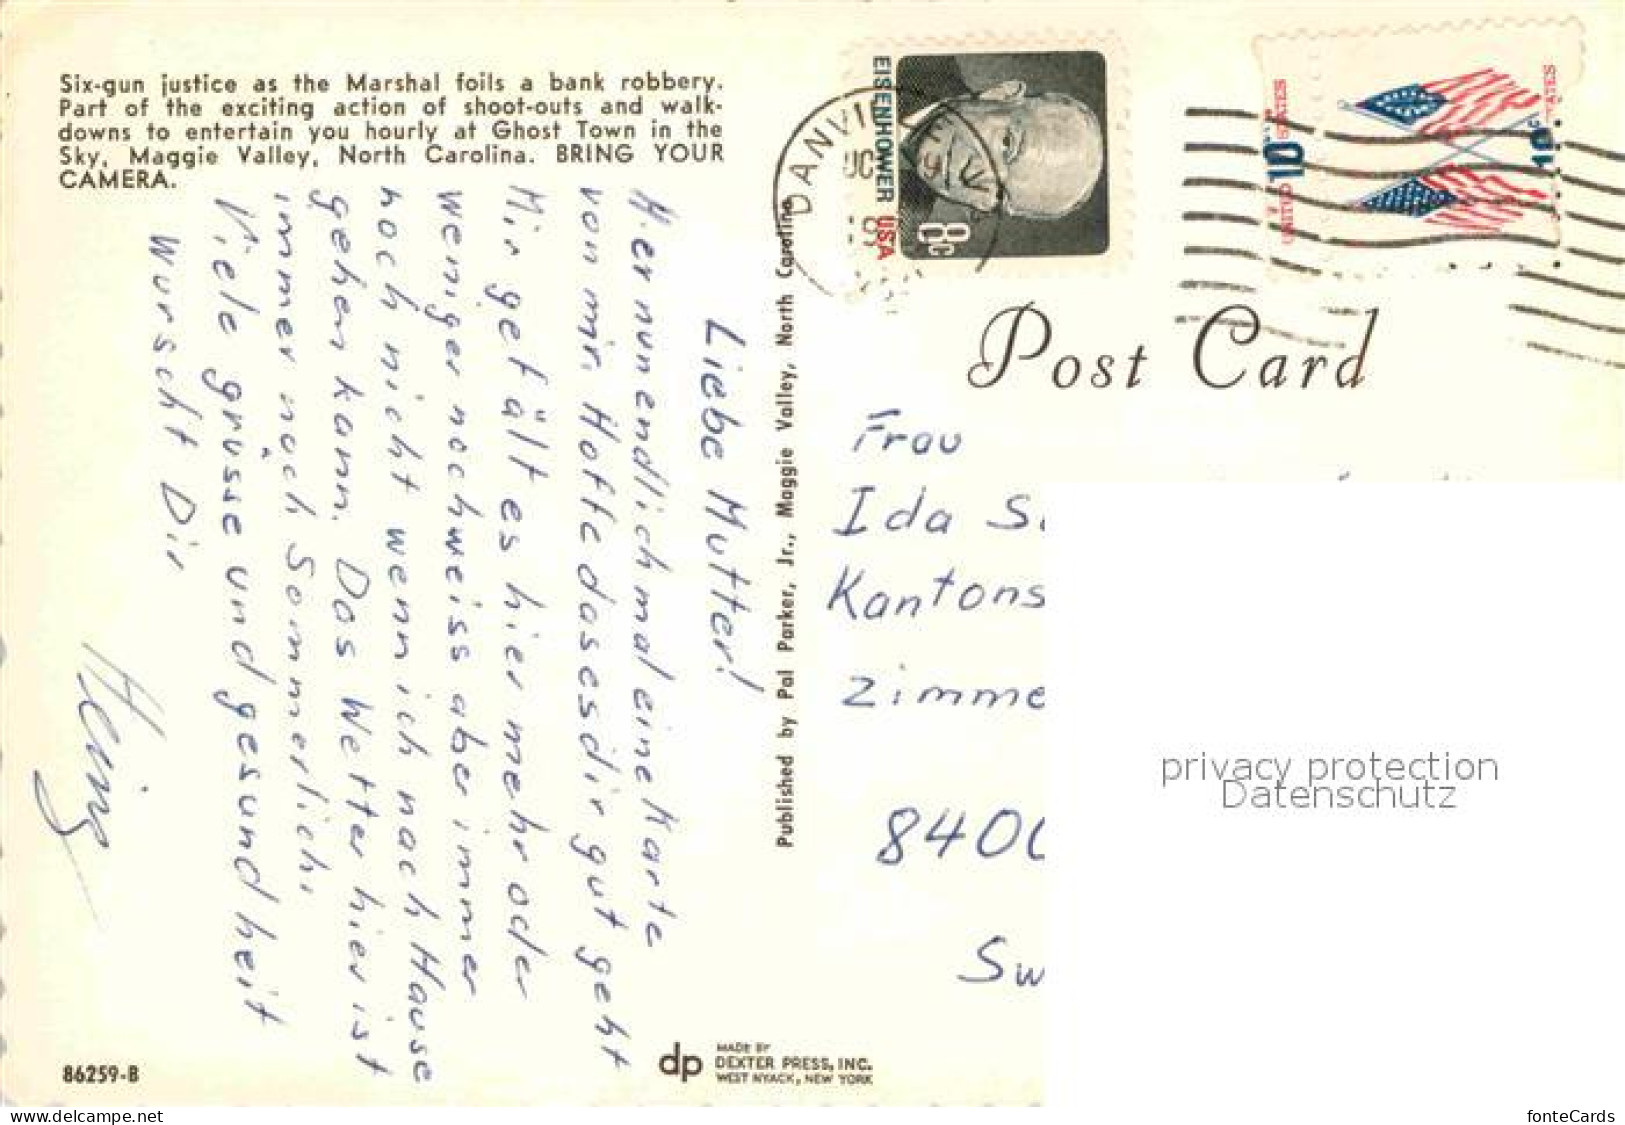 Six-gun justice as the Marshal foils a bank robbery.
Part of the exciting action of shoot-outs and walk-
downs to entertain you hourly at Ghost Town in the
Sky, Maggie Valley, North Carolina. BRING YOUR
CAMERA.
Liebe Mutter!
Hier nun endlich mal eine Karte
von mir. Hoffe das es dir gut geht
Mir gefält es hier mehr oder
weniger noch weiss aber immer
noch nicht wenn ich nach Hause
gehen kann. Das Wetter hier ist
immer noch Sommerlich.
Viele grüsse und gesundheit
wünscht Dir
Heinz
86259-B
Published by Pal Parker, Jr., Maggie Valley, North Carolina
dp
MADE BY
DEXTER PRESS, INC.
WEST NYACK, NEW YORK
DANVILLE
EISENHOWER USA
8c
UNITED STATES
10c
10c
Post Card
Frau
Ida S
Kantons
Zimme
8400
Sw
privacy protection
Datenschutz
www.delcampe.net
fonteCards